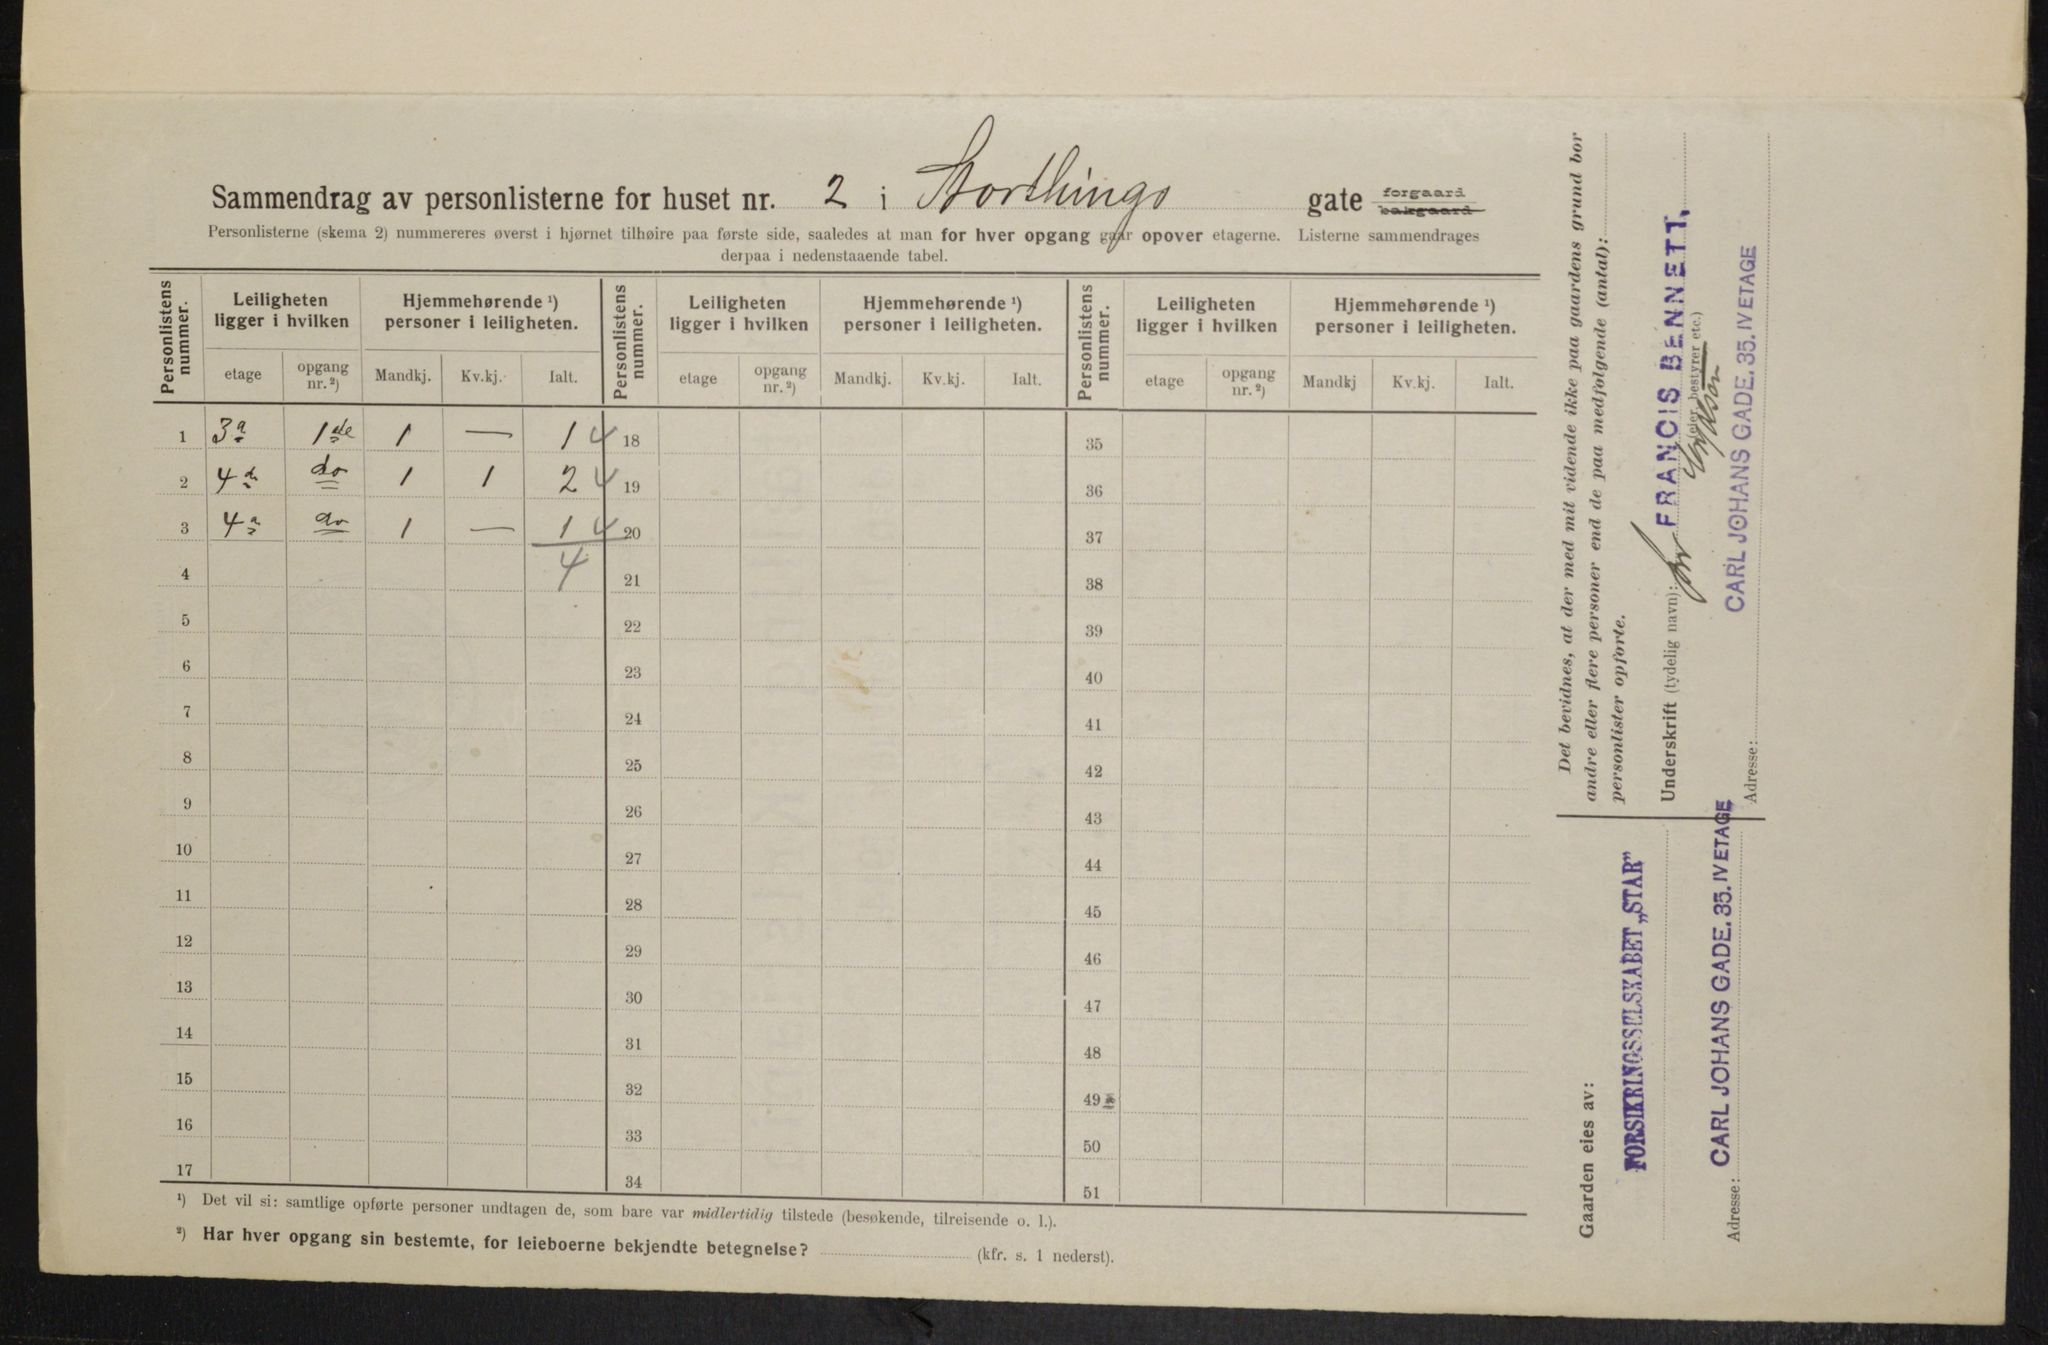 Sammendrag av personlisterne for huset nr. 2 i Storthings gate forgaard bakgaard
Personlisterne (skema 2) nummereres øverst i hjørnet tilhøire paa første side, saaledes at man for hver opgang gaar opover etagerne. Listerne sammendrages
derpaa i nedenstaaende tabel.
Personlistens nummer. Leiligheten ligger i hvilken Hjemmehørende ¹) personer i leiligheten. Personlistens nummer. Leiligheten ligger i hvilken Hjemmehørende ¹) personer i leiligheten. Personlistens nummer. Leiligheten ligger i hvilken Hjemmehørende ¹) personer i leiligheten.
etage opgang nr. ²) Mandkj. Kv.kj. Ialt. etage opgang nr. ²) Mandkj. Kv.kj. Ialt. etage opgang nr. ²) Mandkj Kv.kj. Ialt.
1 3a 1ste 1 — 1 4 18 35
2 4de do 1 1 2 4 19 36
3 4a do 1 — 1 4 20 37
4 4 21 38
5 22 39
6 23 40
7 24 41
8 25 42
9 26 43
10 27 44
11 28 45
12 29 46
13 30 47
14 31 48
15 32 49
16 33 50
17 34 51
¹) Det vil si: samtlige opførte personer undtagen de, som bare var midlertidig tilstede (besøkende, tilreisende o. l.).
²) Har hver opgang sin bestemte, for leieboerne bekjendte betegnelse? (kfr. s. 1 nederst).
Det bevidnes, at der med mit vidende ikke paa gaardens grund bor
andre eller flere personer end de paa medfølgende (antal):
personlister opførte.
Underskrift (tydelig navn): for FRANCIS BENNETT.
(eier, bestyrer etc.)
Adresse: CARL JOHANS GADE. 35. IV ETAGE
Gaarden eies av:
FORSIKRINGSSELSKABET „STAR"
Adresse: CARL JOHANS GADE. 35. IV ETAGE